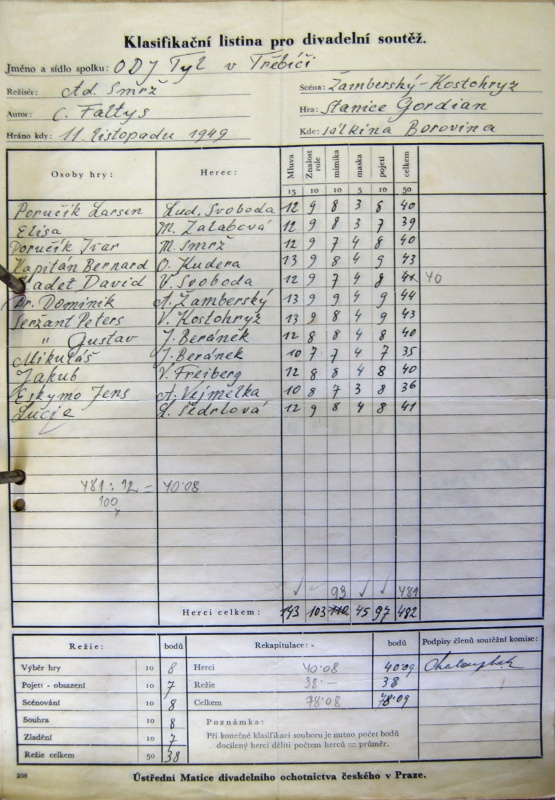 Klasifikační listina pro divadelní soutěž.
Jméno a sídlo spolku: ODJ Tyl v Třebíči
Režisér: Ad. Smrž
Scéna: Žamberský-Kostohryz
Autor: C. Faltys
Hra: Stanice Gordian
Hráno kdy: 11. listopadu 1949
Kde: Borovina
Osoby hry: Herec: Mluva Znalost role mimika maska pojetí celkem
15 10 10 5 10 50
Poručík Larsen Lud. Svoboda 12 9 8 3 8 40
Elisa M. Zalabová 12 9 8 3 7 39
Poručík Ivar M. Smrž 12 9 7 4 8 40
Kapitán Bernard O. Kudera 13 9 8 4 9 43
Kadet David V. Svoboda 12 9 7 4 8 41 40
Dr. Dominik A. Žamberský 13 9 9 4 9 44
Seržant Peters V. Kostohryz 13 9 8 4 9 43
" Gustav J. Beránek 12 8 8 4 8 40
Mikuláš J. Beránek 10 7 7 4 7 35
Jakub V. Freiberg 12 8 8 4 8 40
Eskymo Jens A. Vejmelka 10 8 7 3 8 36
Lucie 12 9 8 4 8 41
481 : 12 = 40·08
100
93 481
Herci celkem: 143 103 112 45 97 482
Režie: bodů
Výběr hry 10 8
Pojetí - obsazení 10 7
Scénování 10 8
Souhra 10 8
Zladění 10 7
Režie celkem 50 38
Rekapitulace: bodů
Herci 40·08 40·09
Režie 38·— 38
Celkem 78·08 78·09
Poznámka:
Při konečné klasifikaci souboru je nutno počet bodů
docílený herci děliti počtem herců = průměr.
Podpisy členů soutěžní komise:
208
Ústřední Matice divadelního ochotnictva českého v Praze.